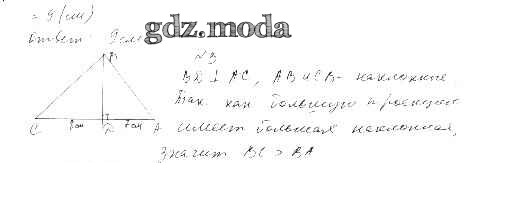 = 9 (см)
Ответ: 9 см
gdz.moda
№3
B
BD ⊥ AC, AB и CB - наклонные.
Так как большую проекцию
C 8 см D 7 см A имеет большая наклонная,
значит BC > BA